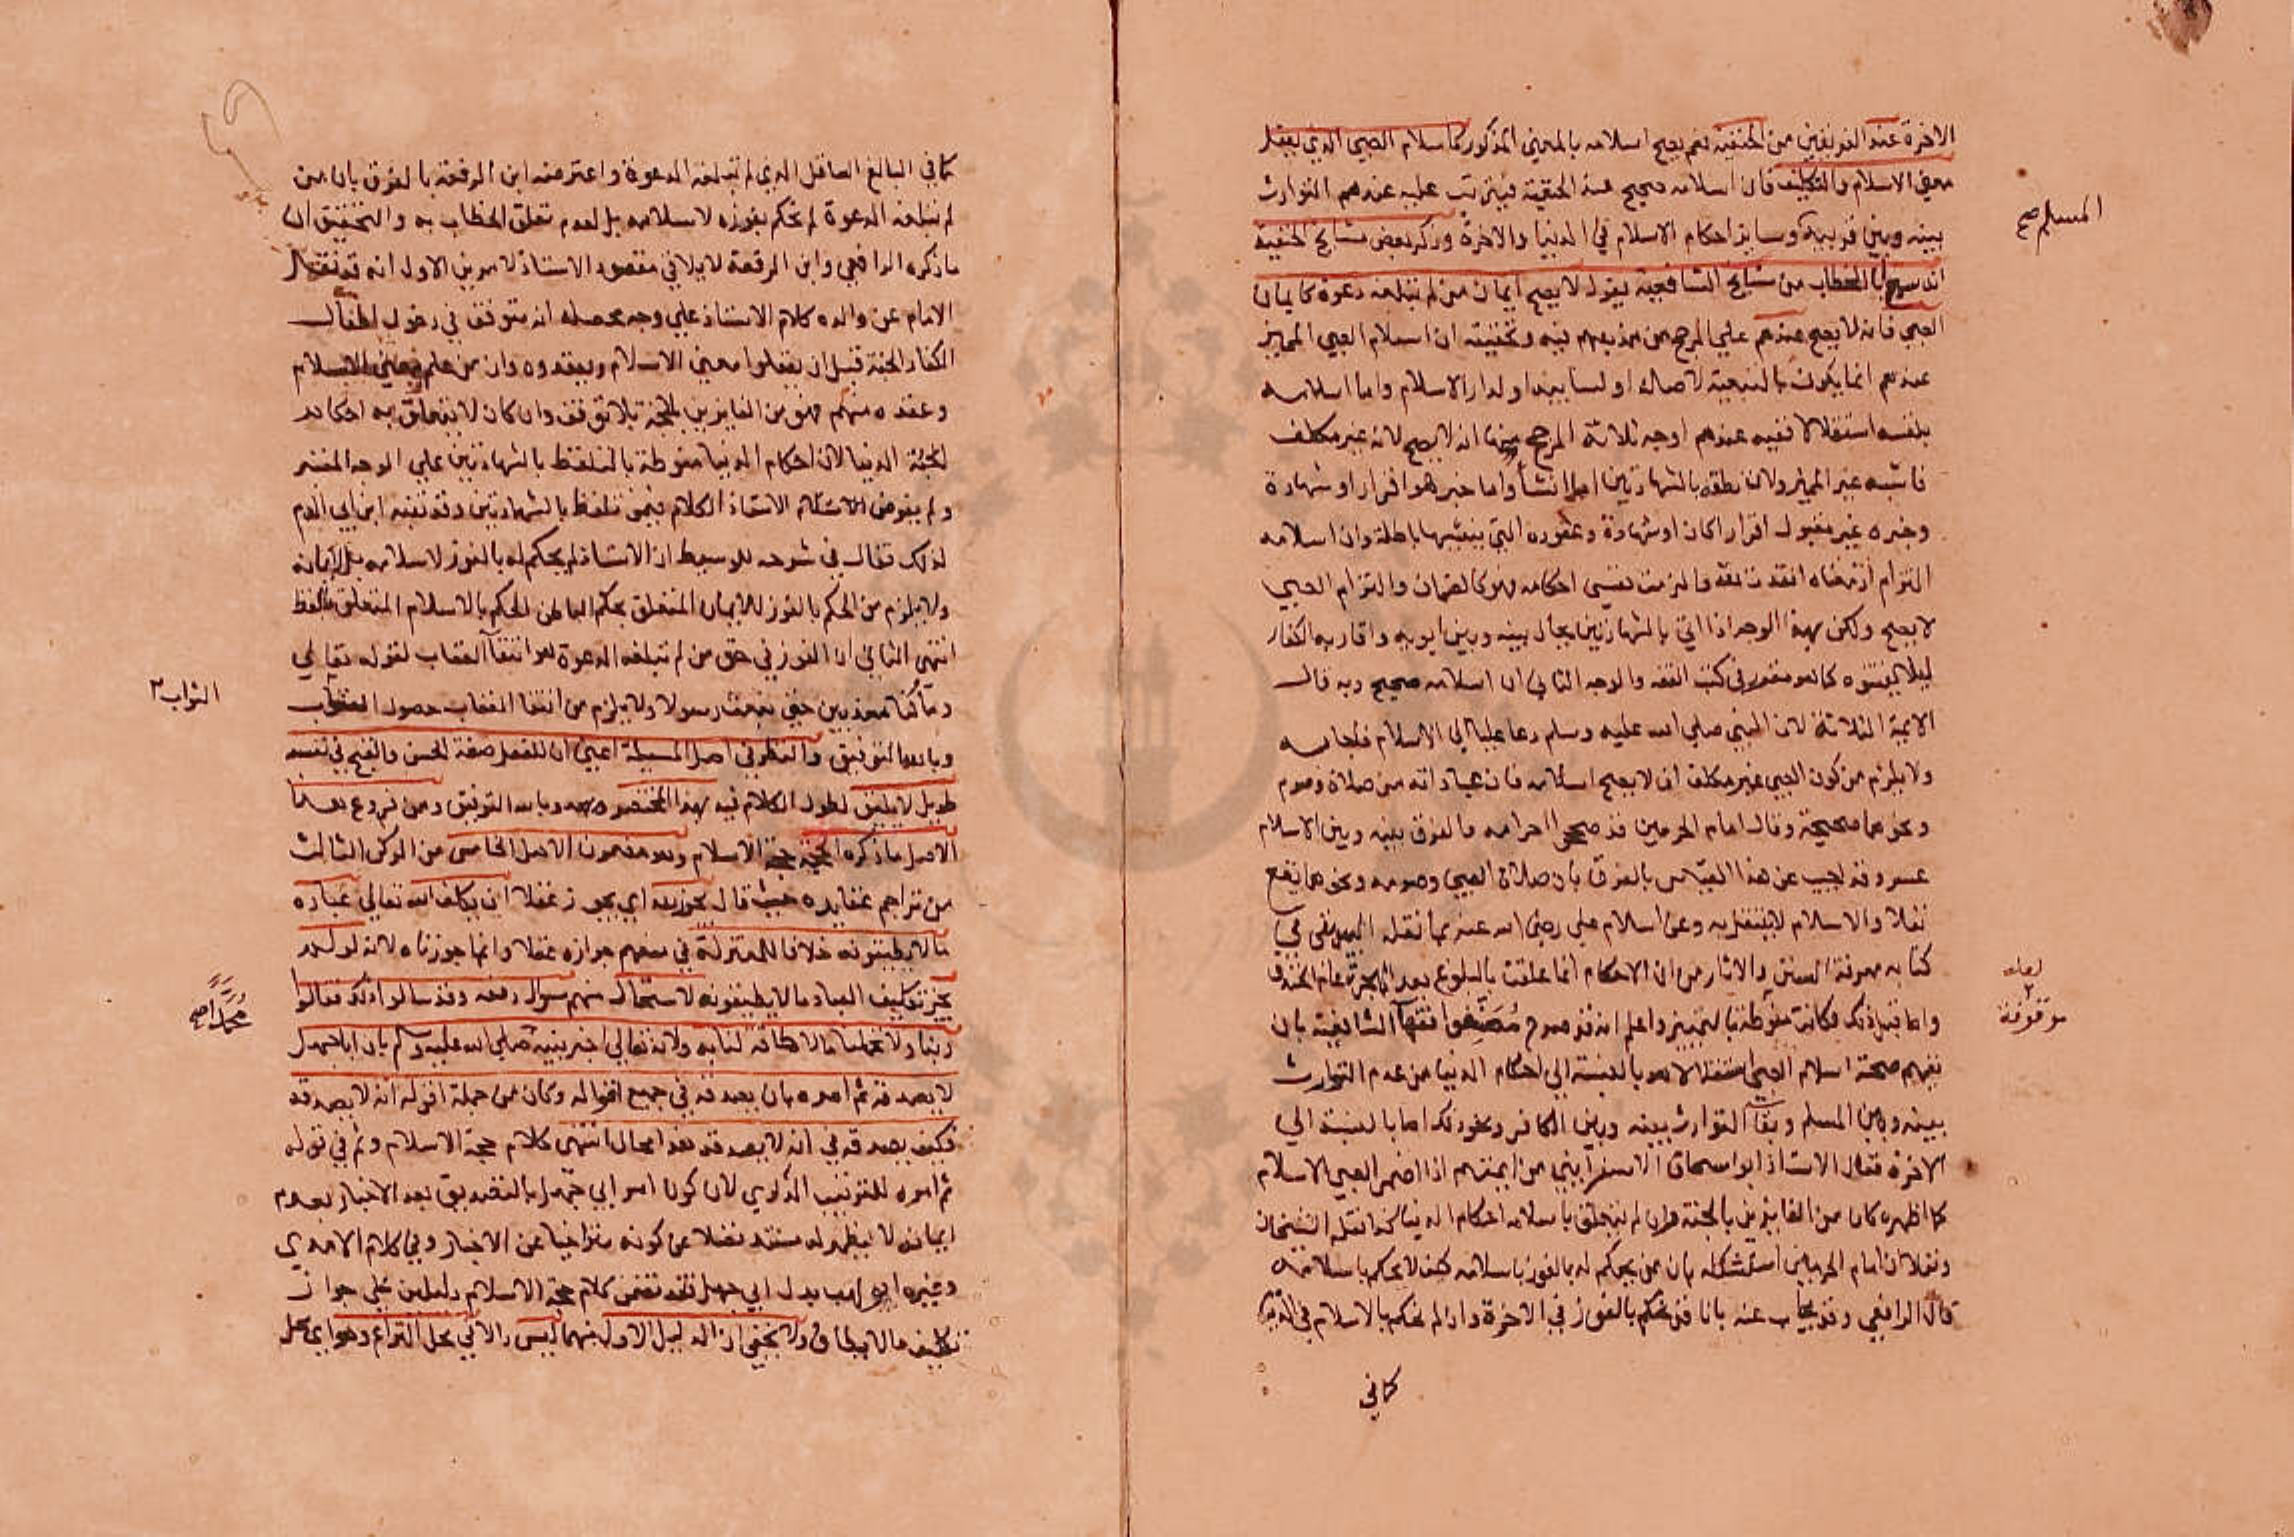 الاخرة عند الفريقين من الحنفية نعم يصح اسلامه بالمعني المذكور كاسلام الصبي الذي يعقل
معني الاسلام والتكليف فان اسلامه صحيح عند الحنفية فيترتب عليه عندهم التوارث
بينه وبين قريبه وساير احكام الاسلام في الدنيا والاخرة وذكر بعض مشايخ الحنفية
انه سمع ابا الخطاب من مشايخ الشافعية يقول لا يصح ايمان من لم تبلغه دعوة كايمان
الصبي فانه لا يصح عندهم علي المرجح من مذهبهم فيه وتحقيقه ان اسلام الصبي المميز
عندهم انما يكون بالتبعية لاصله او لسابيه او لدار الاسلام واما اسلامه
بنفسه استقلالا ففيه عندهم اوجه ثلاثة المرجح منها انه لا يصح لانه غير مكلف
فاشبه غير المميز ولان نطقه بالشهادتين اما انشا واما خبر هو اقرار او شهادة
وخبره غير مقبول اقرارا كان او شهادة وعقوده التي ينشيها باطلة وان اسلامه
التزام اذ معناه انقدت لله والزمت نفسي احكامه فهو كالضمان والتزام الصبي
لا يصح ولكن بهذا الوجه اذا اتي بالشهادتين يحال بينه وبين ابويه واقاربه الكفار
ليلا يفتنوه كما هو مقرر في كتب الفقه والوجه الثاني ان اسلامه صحيح وبه قال
الايمة الثلاثة لان النبي صلي الله عليه وسلم دعا عليا الي الاسلام فاجابه
ولا يلزم من كون الصبي غير مكلف ان لا يصح اسلامه فان عباداته من صلاة وصوم
ونحوهما صحيحة وقال امام الحرمين قد صححوا احرامه فالفرق بينه وبين الاسلام
عسر وقد اجيب عن هذا القياس بالفرق بان صلاة الصبي وصومه ونحوهما يقع
نفلا والاسلام لا يتنفل به وعن اسلام علي رضي الله عنه بما نقله البيهقي في
كتابه معرفة السنن والاثار من ان الاحكام انما علقت بالبلوغ بعد الهجرة عام الخندق
واما قبل ذلك فكانت منوطة بالتمييز واعلم انه قد صرح فقها الشافعية بان
نفيهم صحة اسلام الصبي استقلالا هو بالنسبة الي احكام الدنيا من عدم التوارث
بينه وبين المسلم وبقا التوارث بينه وبين الكافر ونحو ذلك اما بالنسبة الي
الاخرة فقال الاستاذ ابو اسحاق الاسفرايني من ايمتهم اذا اضمر الصبي الاسلام
كما اظهره كان من الفايزين بالجنة وان لم يتعلق باسلامه احكام الدنيا كذا نقله الشيخان
ونقلا ان امام الحرمين استشكله بان من يحكم له بالفوز باسلامه كيف لا يحكم باسلامه
قال الرافعي وقد يجاب عنه بانا قد نحكم بالفوز في الاخرة وان لم نحكم بالاسلام في الدنيا
كما في
المسلم صح
لعله
موقوفة
كما في البالغ العاقل الذي لم تبلغه الدعوة واعترضه ابن الرفعة بالفرق بان من
لم تبلغه الدعوة لم نحكم بفوزه لاسلامه بل لعدم تعلق الخطاب به والتحقيق ان
ما ذكره الرافعي وابن الرفعة لا يلاقي مقصود الاستاذ لامرين الاول انه قد نقل
الامام عن والده كلام الاستاذ علي وجه محصله انه متوقف في دخول اطفال
الكفار الجنة قبل ان يعقلوا معني الاسلام ويعقدوه وان من علم معني الاسلام
وعقده منهم فهو من الفايزين بالجنة بلا توقف وان كان لا يتعلق به احكام
الدنيا لان احكام الدنيا منوطة بالتلفظ بالشهادتين علي الوجه المعتبر
ولم يفرض الاستاذ الكلام فيمن تلفظ بالشهادتين وقد تنبه ابن ابي الدم
لذلك فقال في شرحه للوسيط ان الاستاذ لم يحكم له بالفوز لاسلامه بل لايمانه
ولا يلزم من الحكم بالفوز للايمان المتعلق بحكم الباطن الحكم بالاسلام المتعلق باللفظ
انتهي الثاني ان الفوز في حق من لم تبلغه الدعوة هو انتفا العقاب لقوله تعالي
وما كنا معذبين حتي نبعث رسولا ولا يلزم من انتفا العقاب حصول
وبالله التوفيق والنظر في اصل المسيلة اعني ان للفعل صفة الحسن والقبح في نفسه
طويل لا يليق لطول الكلام فيه بهذا المختصر وبالله التوفيق ومن فروع هذا
الاصل ما ذكره حجة الاسلام وهو مضمون الاصل الخامس من الركن الثالث
من تراجم عقايده حيث قال يجوز لله اي يجوز عقلا ان يكلف الله تعالي عباده
ما لا يطيقونه خلافا للمعتزلة في منعهم جوازه عقلا وانما جوزناه لانه لو لم
يجز تكليف العباد ما لا يطيقونه لاستحال منهم سوال دفعه وقد سالوا ذلك فقالوا
ربنا ولا تحملنا ما لا طاقة لنا به ولانه تعالي اخبر نبيه صلي الله عليه وسلم بان ابا جهل
لا يصدقه ثم امره بان يصدقه في جميع اقواله وكان من جملة اقواله انه لا يصدقه
فكيف يصدقه في انه لا يصدقه هذا محال انتهي كلام حجة الاسلام وثم في قوله
ثم امره للترتيب الذكري لان كون امر ابي جهل بالتصديق بعد الاخبار بعدم
ايمانه لا يظهر له مستند فضلا عن كونه متراخيا عن الاخبار وفي كلام الامدي
وغيره ابو لهب بدل ابي جهل فقد تضمن كلام حجة الاسلام دليلين علي جواز
تكليف ما لا يطاق ولا يخفي ان الدليل الاول منهما ليس دالا في محل النزاع وهو اي محل
الثواب
محمدا صح